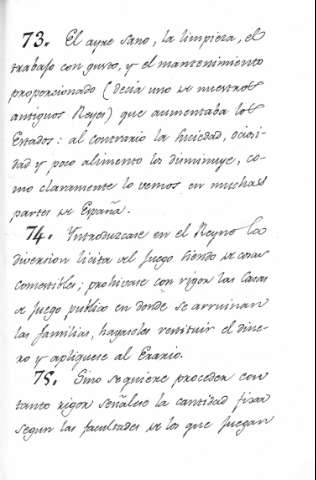 73. El ayre sano, la limpieza, el
trabajo con gusto, y el mantenimiento
proporcionado (decia uno de nuestros
antiguos Reyes) que aumentaba los
Estados: al contrario la suciedad, ocioci-
dad y poco alimento los disminuye, co-
mo claramente lo vemos en muchas
partes de España.
74. Yntroduzcase en el Reyno la
diversion licita del juego siendo de cosas
comestibles; prohivase con rigor las Casas
de juego publico en donde se arruinan
las familias, hagaseles restituir el dine-
ro y apliquese al Erario.
75. Sino se quiere proceder con
tanto rigor señalese la cantidad fixa
segun las facultades de los que juegan